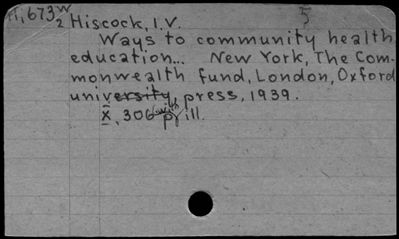 H,673W 5
2 Hiscock, I.V.
Ways to community health
education... New York, The Com-
monwealth fund, London, Oxford
university press, 1939.
x, 306 p. ill.